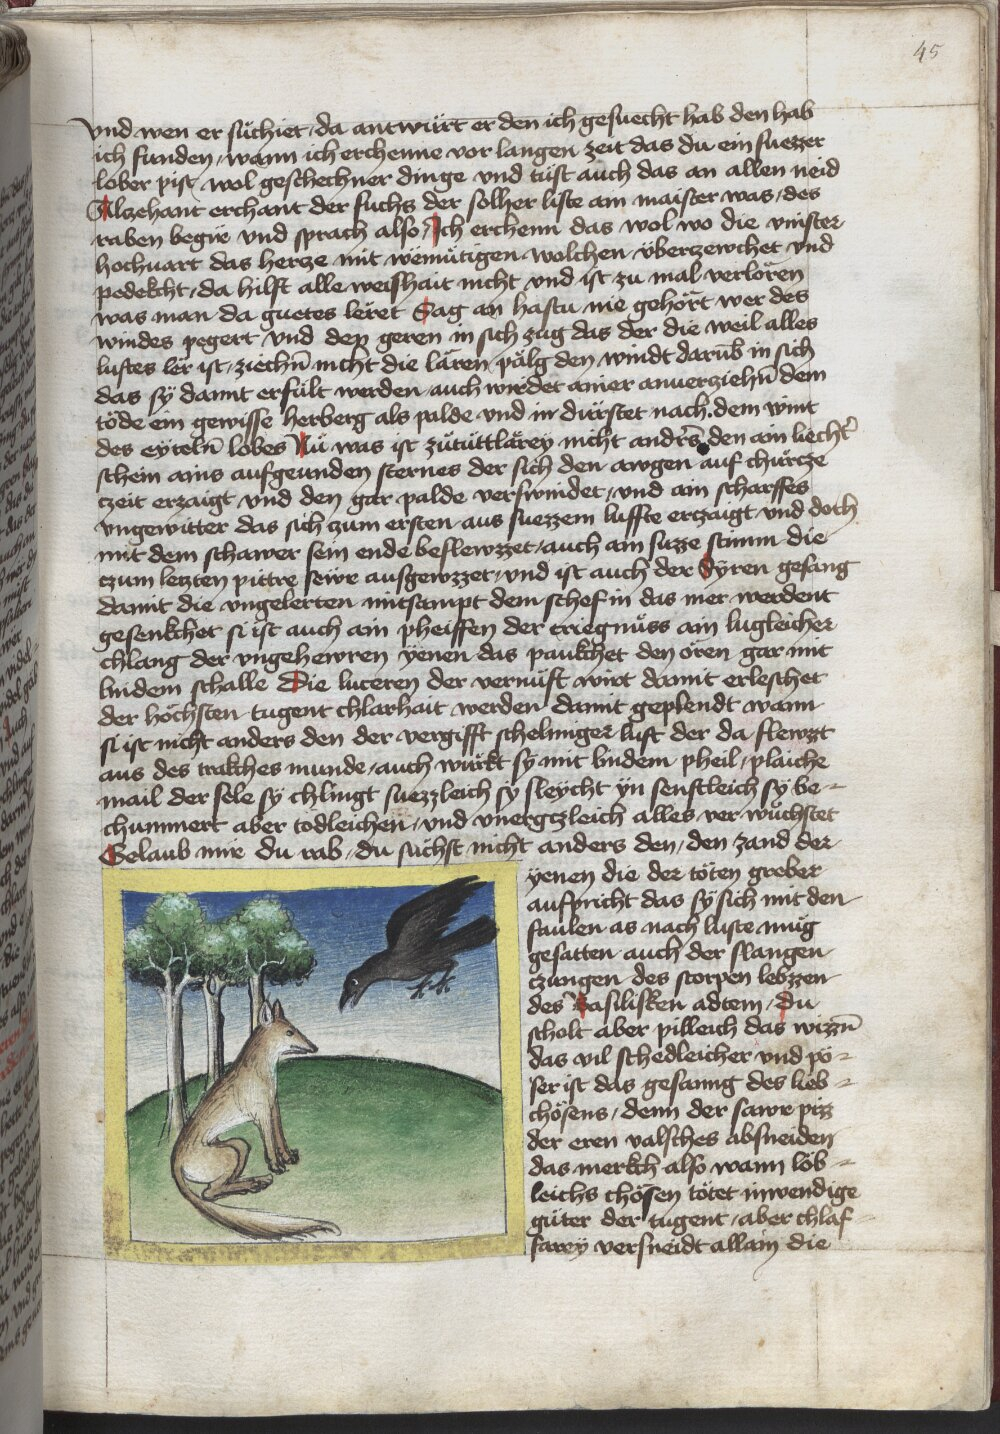 45
vnd wen er süchiet / da antwürt er den ich gesuecht hab den hab
ich funden / wann ich erchenne vor langen zeit das du ein suezzer
lober pist wol geschechner dinge vnd tüst auch das an allen neid
Alzehant erchant der fuchs der solher liste ain maister was / des
raben begir vnd sprach also / Ich erchenn das wol wo die vinster
hochuart das hertze mit wemütigen wolchen überzewchet vnd
pedekcht / da hilft alle weishait nicht vnd ist zu mal verloren
was man da guetes leret Sag an hastu nie gehört wer des
windes pegert vnd den geren in sich zug das der die weil alles
luftes ler ist / ziechn̄ nicht die lären pälg den windt darūb in sich
das sÿ damit erfült werden / auch wirdet ainer anuerziehn̄ dem
töde ein gewisse herberg als palde vnd in dürstet nach dem wint
des eyteln̄ lobes Nü was ist zütüttlärey nicht andr̄s den ain liecht̄
schein ains aufgeunden sternes der sich den awgen auf chürcze
czeit erzaigt vnd den gar palde verswindet / vnd ain scharffes
vngewitter das sich zum ersten aus suezzem luffte ertzaigt vnd doch
mit dem schawer sein ende beslewzzet / auch ain süzze stimm die
czum letzten pittre seüre ausgewzzet / vnd ist auch der Syren gesang
damit die vngelerten mitsampt dem schef in das mer werdent
gesenkchet si ist auch ain pheiffen der triegnüss ain lugleicher
chlang der vngehewren yenen das paukchet den oren gar mit
lindem schalle Die luceren der vernüft wirt damit erleschet
der höchsten tugent chlarhait werden damit geplendt wann
si ist nicht anders den der vergifft schelmiger luft der da flewzt
aus des trakches munde / auch würkt sÿ mit lindem pheil / plaiche
mail der sele sÿ chlingt suezzleich sÿ sleycht ÿn senftleich sÿ be-
chummert aber todleichen / vnd vnergtzleich alles verwüchstet
Gelaub mir du rab / du süchst nicht anders den / den zand der
yenen die der töten greber
aufpricht das sÿ sich mit den
faulen as nach luste müg
gesatten auch der slangen
czungen des scorpen lebzzen
des Basilisken adtem / du
scholt aber pilleich das wizzn̄
das vil schedleicher vnd pö-
ser ist das gesanng des lieb-
chösens / denn der sawr piz
der eren valsches absneiden
das merkch also wann löb-
leichs chösen tötet inwendige
güter der tugent / aber chlaf-
farey versneidt allain die